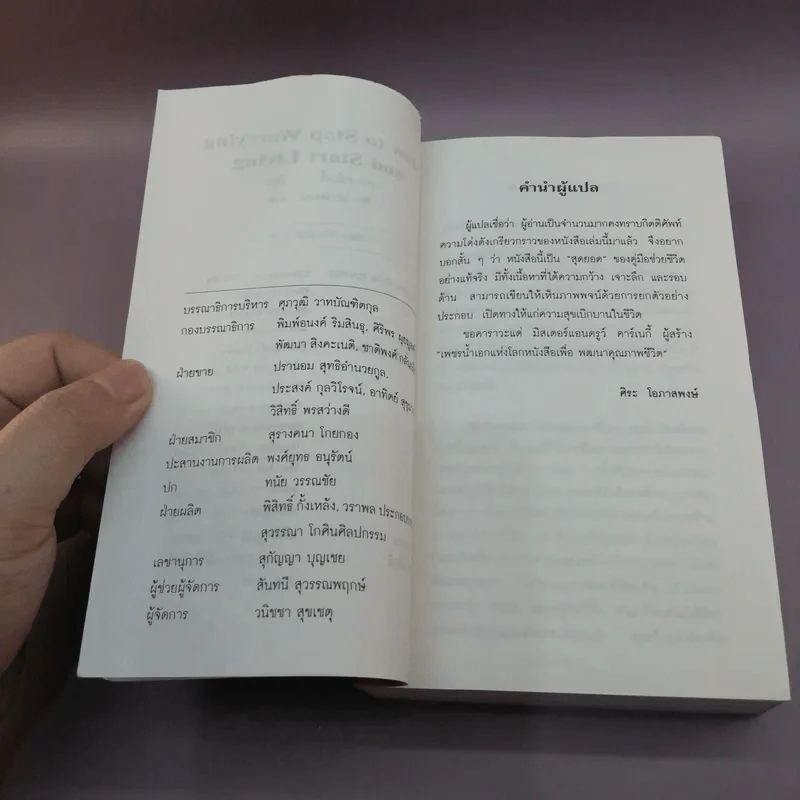 บรรณาธิการบริหาร ศุภวุฒิ วาทบัณฑิตกุล
กองบรรณาธิการ พิมพ์อนงค์ ริมสินธุ, ศิริพร
พัฒนา สิงคะเนติ, ชาติพงศ์
ฝ่ายขาย ปรานอม สุทธิอำนวยกูล,
ประสงค์ กุลวิโรจน์, อาทิตย์
วิสิทธิ์ พรสว่างดี
ฝ่ายสมาชิก สุรางคนา โกยกอง
ประสานงานการผลิต พงศ์ยุทธ อนุรัตน์
ปก ทนัย วรรณชัย
ฝ่ายผลิต พิสิทธิ์ กั้งเหล้ง, วราพล
สุวรรณา โกศินศิลปกรรม
เลขานุการ สุกัญญา บุญเชย
ผู้ช่วยผู้จัดการ สันทนี สุวรรณพฤกษ์
ผู้จัดการ วนิชชา สุขเชตุ
คำนำผู้แปล
ผู้แปลเชื่อว่า ผู้อ่านเป็นจำนวนมากคงทราบกิตติศัพท์
ความโด่งดังเกรียวกราวของหนังสือเล่มนี้มาแล้ว จึงอยาก
บอกสั้น ๆ ว่า หนังสือนี้เป็น "สุดยอด" ของคู่มือช่วยชีวิต
อย่างแท้จริง มีทั้งเนื้อหาที่ได้ความกว้าง เจาะลึก และรอบ
ด้าน สามารถเขียนให้เห็นภาพพจน์ด้วยการยกตัวอย่าง
ประกอบ เปิดทางให้แก่ความสุขเบิกบานในชีวิต
ขอคาราวะแด่ มิสเตอร์แอนดรูว์ คาร์เนกี้ ผู้สร้าง
"เพชรน้ำเอกแห่งโลกหนังสือเพื่อ พัฒนาคุณภาพชีวิต"
ศิระ โอภาสพงษ์